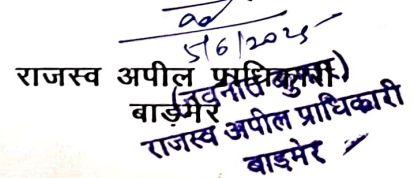 5/6/2025
राजस्व अपील प्राधिकारी
(नवनीत कुमार)
बाड़मेर
राजस्व अपील प्राधिकारी
बाड़मेर